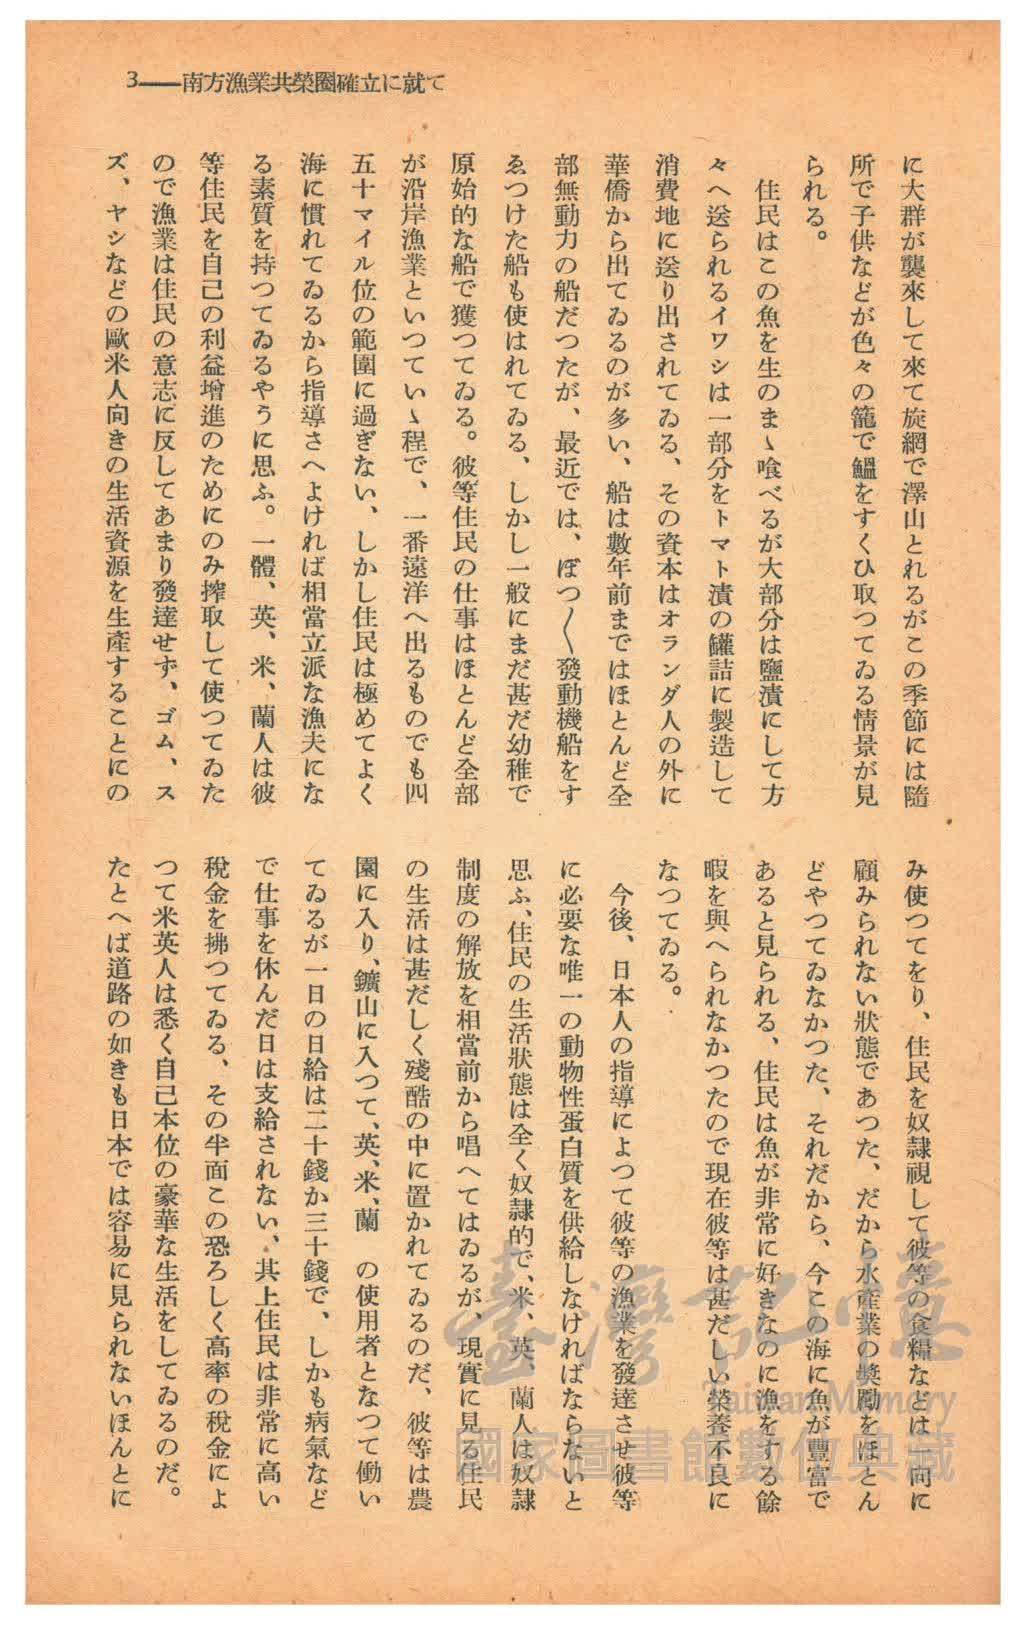 3――南方漁業共榮圈確立に就て
に大群が襲來して來て旋網で澤山とれるがこの季節には隨
所で子供などが色々の籠で鰮をすくひ取つてゐる情景が見
られる。
住民はこの魚を生のまゝ喰べるが大部分は鹽漬にして方
々へ送られるイワシは一部分をトマト漬の罐詰に製造して
消費地に送り出されてゐる、その資本はオランダ人の外に
華僑から出てゐるのが多い、船は數年前まではほとんど全
部無動力の船だつたが、最近では、ぼつ〱發動機船をす
ゑつけた船も使はれてゐる、しかし一般にまだ甚だ幼稚で
原始的な船で獲つてゐる。彼等住民の仕事はほとんど全部
が沿岸漁業といつていゝ程で、一番遠洋へ出るものでも四
五十マイル位の範圍に過ぎない、しかし住民は極めてよく
海に慣れてゐるから指導さへよければ相當立派な漁夫にな
る素質を持つてゐるやうに思ふ。一體、英、米、蘭人は彼
等住民を自己の利益增進のためにのみ搾取して使つてゐた
ので漁業は住民の意志に反してあまり發達せず、ゴム、ス
ズ、ヤシなどの歐米人向きの生活資源を生產することにの
み使つてをり、住民を奴隷視して彼等の食糧などは一向に
顧みられない狀態であつた、だから水產業の奬勵をほとん
どやつてゐなかつた、それだから、今この海に魚が豐富で
あると見られる、住民は魚が非常に好きなのに漁をする餘
暇を與へられなかつたので現在彼等は甚だしい榮養不良に
なつてゐる。
今後、日本人の指導によつて彼等の漁業を發達させ彼等
に必要な唯一の動物性蛋白質を供給しなければならないと
思ふ、住民の生活狀態は全く奴隷的で、米、英、蘭人は奴隷
制度の解放を相當前から唱へてはゐるが、現實に見る住民
の生活は甚だしく殘酷の中に置かれてゐるのだ、彼等は農
園に入り、鑛山に入つて、英、米、蘭 の使用者となつて働い
てゐるが一日の日給は二十錢か三十錢で、しかも病氣など
で仕事を休んだ日は支給されない、其上住民は非常に高い
稅金を拂つてゐる、その半面この恐ろしく高率の稅金によ
つて米英人は悉く自己本位の豪華な生活をしてゐるのだ。
たとへば道路の如きも日本では容易に見られないほんとに
臺灣記憶
Taiwan Memory
國家圖書館數位典藏